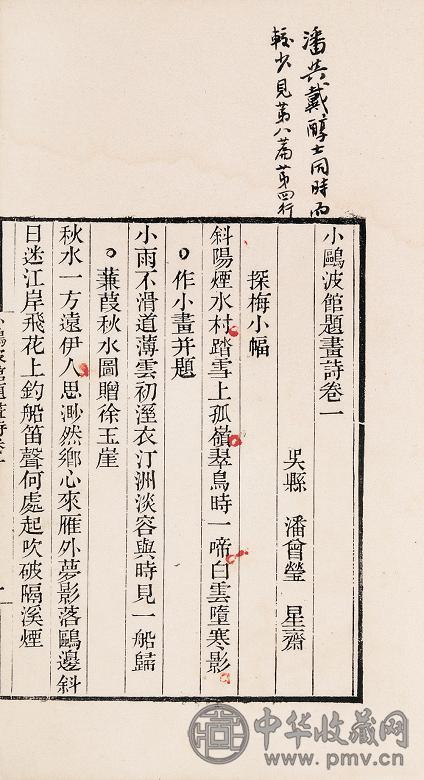 潘共戴醇士同時而
較少見第八篇第四行
小鷗波館題畫詩卷一
吳縣 潘曾瑩 星齋
探梅小幅
斜陽煙水村踏雪上孤嶺翠鳥時一啼白雲墮寒影
作小畫并題
小雨不滑道薄雲初溼衣汀洲淡容與時見一船歸
蒹葭秋水圖贈徐玉崖
秋水一方遠伊人思渺然鄉心來雁外夢影落鷗邊斜
日迷江岸飛花上釣船笛聲何處起吹破隔溪煙
中华收藏网
www.pmv.cn